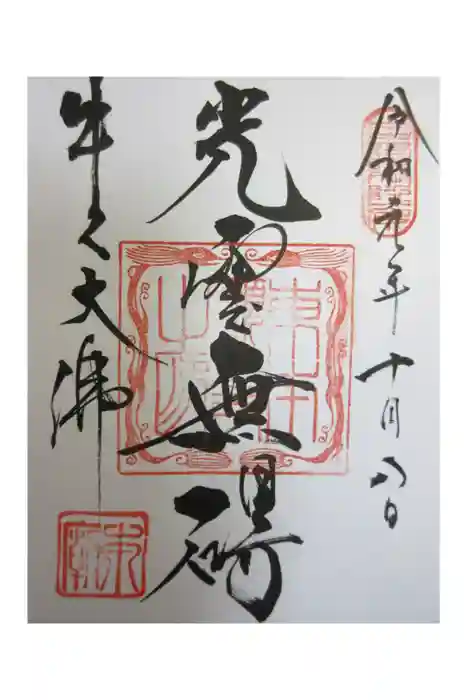 令和元年十月八日
光雲無碍
牛久大佛